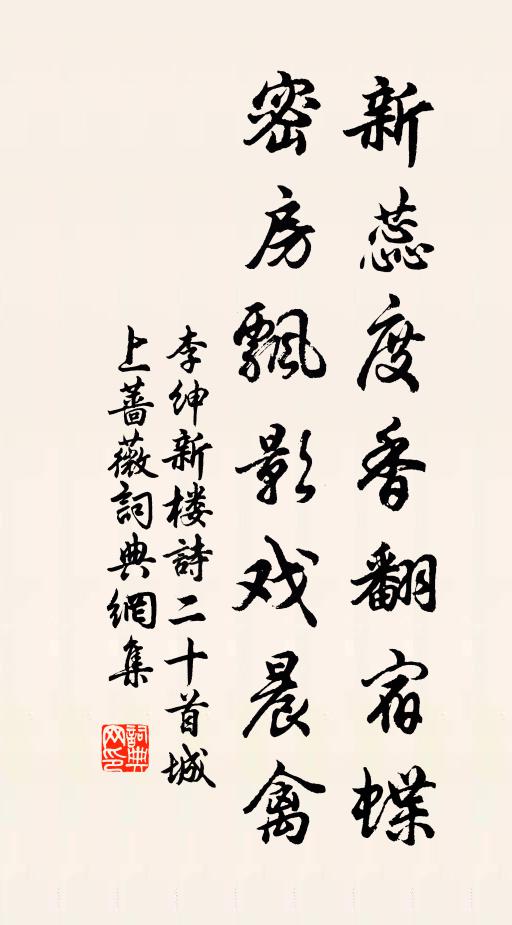 新蕊度香翻宿蝶
密房飄影戏晨禽
李绅新楼詩二十首城
上薔薇詞典網集
詞典网印